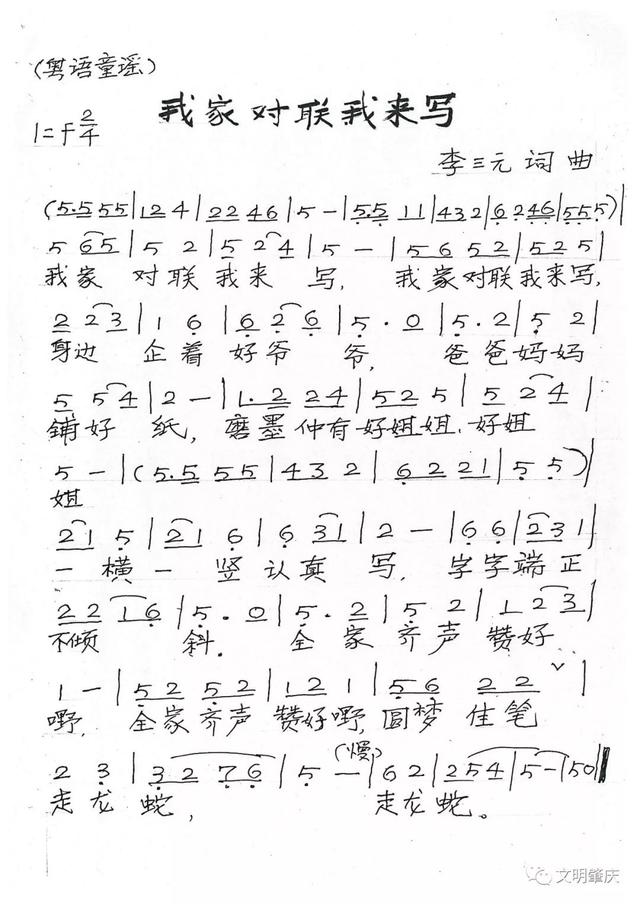 (粤语童瑶)
我家对联我来写
1=f 2/4
李三元 词 曲
(5.5 5 5|1 2 4|2 2 4 6|5 -|5.5 1 1|4 3 2|6 2 4 6|5 5 5)|
5 6 5|5 2|5 2 4|5 -|5 6 5 2|5 2 5|
我家 对联 我来 写, 我家对联我来写,
2 2 3|1 6|6 2 6|5 . 0|5 . 2|5 2|
身边 企着 好爷 爷, 爸爸妈妈
5 5 4|2 -|1 . 2 2 4|5 2 5|5 2 4|
铺好 纸, 磨墨仲有好姐姐.好姐
5 -|(5.5 5 5|4 3 2|6 2 2 1|5 5)|
姐
2 1 5|2 1 6|6 3 1|2 -|6 6|2 3 1|
一横一竖认真 写, 字字端正
2 2 1 6|5 . 0|5 . 2|5 2|1 2 3|
不倾 斜. 全家齐声 赞好
1 -|5 2 5 2|1 2 1|5 6 2 2 ˅|
嘢, 全家齐声 赞好嘢,圆梦佳笔
(慢)
2 3|3 2 7 6|5 -|6 2|2 5 4|5 -|5 0‖
走龙 蛇, 走龙蛇。
文明肇庆